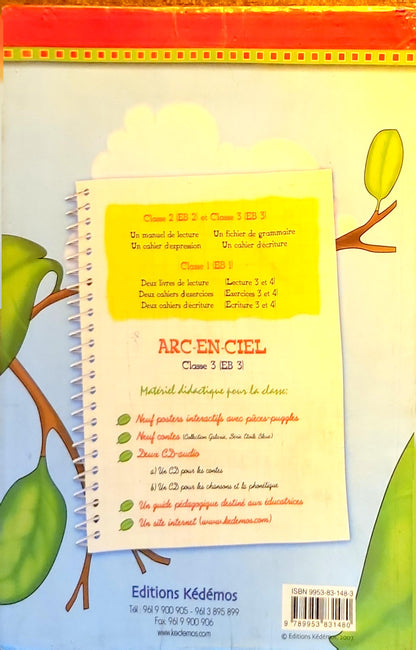 Classe 2 (EB 2) et Classe 3 (EB 3)
Un manuel de lecture Un fichier de grammaire
Un cahier d'expression Un cahier d'écriture
Classe 1 (EB 1)
Deux livres de lecture (Lecture 3 et 4)
Deux cahiers d'exercices (Exercices 3 et 4)
Deux cahiers d'écriture (Ecriture 3 et 4)
ARC-EN-CIEL
Classe 3 (EB 3)
Matériel didactique pour la classe:
Neuf posters interactifs avec pièces-puzzles
Neuf contes (Collection Galaxie, Série Etoile Bleue)
Deux CD-audio
a) Un CD pour les contes
b) Un CD pour les chansons et la phonétique
Un guide pédagogique destiné aux éducatrices
Un site internet (www.kedemos.com)
Editions Kédémos
Tél : 961 9 900 905 - 961 3 895 899
Fax: 961 9 900 906
www.kedemos.com
ISBN 9953-83-148-3
9 789953 831480
© Editions Kédémos, 2007